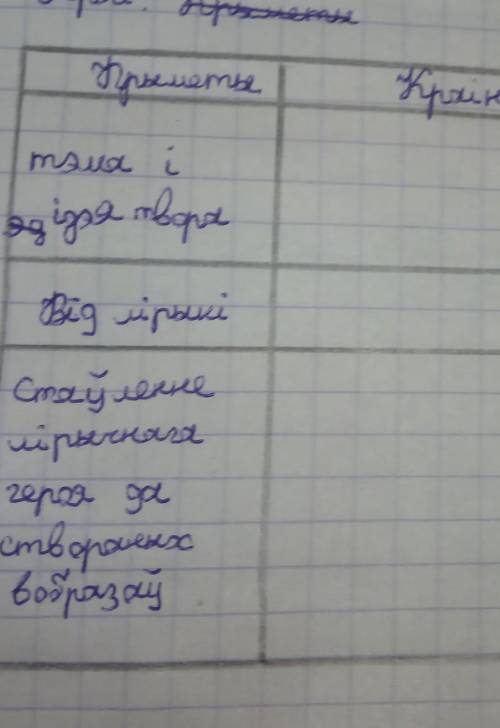 Прыметы
Краін
тэма і
ідэя твора
Від лірыкі
Стаўленне
лірычнага
героя да
створаных
вобразаў